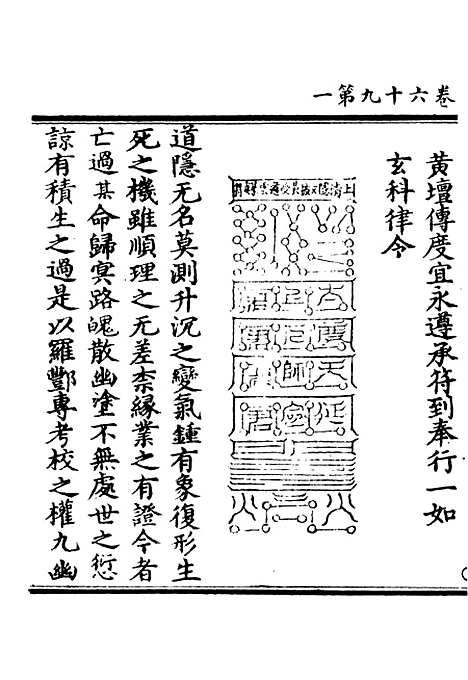 卷六十九第一
黃壇傳度宜永遵承符到奉行一如
玄科律令
道隱无名莫測升沉之變氣鍾有象復形生
死之機雖順理之无差柰緣業之有證今者
亡過某命歸冥路魄散幽塗不無處世之愆
諒有積生之過是以羅酆專考校之權九幽